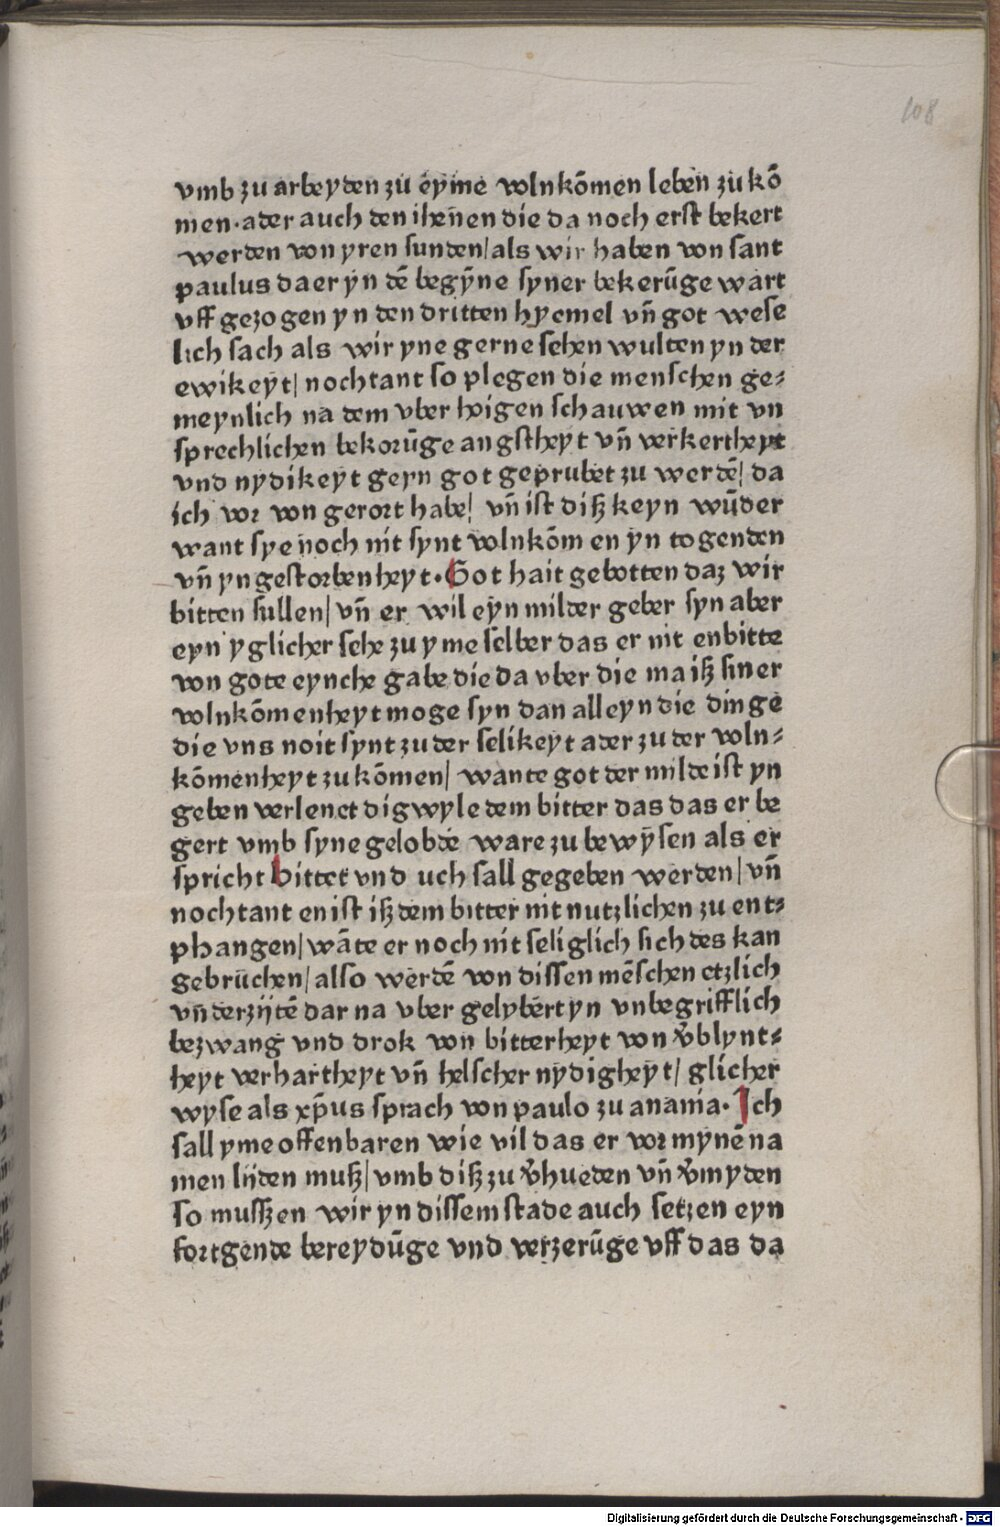 108
vmb zu arbeyden zu eyme volnkōmen leben zu kō
men·ader auch den ihenen die da noch erst bekert
werden von yren sunden/als wir haben von sant
paulus da er yn dē begȳne syner bekerūge wart
vff gezogen yn den dritten hyemel vn̄ got wese
lich sach als wir yne gerne sehen wulten yn der
ewikeyt/ nochtant so plegen die menschen ge⸗
meynlich na dem vber hoigen schauwen mit vn
sprechlichen bekorūge angstheyt vn̄ verkertheyt
vnd nydikeyt geyn got geprubet zu werdē/ da
ich vor von gerort habe/ vn̄ ist diß keyn wūder
want sye noch nit synt volnkōm en yn togenden
vn̄ yn gestorbenheyt·Got hait gebotten daz wir
bitten sullen/ vn̄ er wil eyn milder geber syn aber
eyn yglicher sehe zu yme selber das er nit enbitte
von gote eynche gabe die da vber die maiß siner
volnkōmenheyt moge syn dan alleyn die dinge
die vns noit synt zu der selikeyt ader zu der voln⸗
kōmenheyt zu kōmen/ wante got der milde ist yn
geben verlenet digwyle dem bitter das das er be
gert vmb syne gelobde ware zu bewysen als er
spricht bittet vnd uch sall gegeben werden/ vn̄
nochtant en ist iß dem bitter nit nutzlichen zu ent⸗
phangen/ wāte er noch nit seliglich sich des kan
gebruchen/ also werdē von dissen mēschen etzlich
vn̄derzijtē dar na vber gelybert yn vnbegrifflich
bezwang vnd drok von bitterheyt von v̄blynt⸗
heyt verhartheyt vn̄ helscher nydigheyt/ glicher
wyse als xp̄us sprach von paulo zu anania·Ich
sall yme offenbaren wie vil das er vor mynē na
men lijden muß/ vmb diß zu v̄hueden vn̄ v̄myden
so mussen wir yn dissem stade auch setzen eyn
fortgende bereydūge vnd verzerūge vff das da
Digitalisierung gefördert durch die Deutsche Forschungsgemeinschaft - DFG